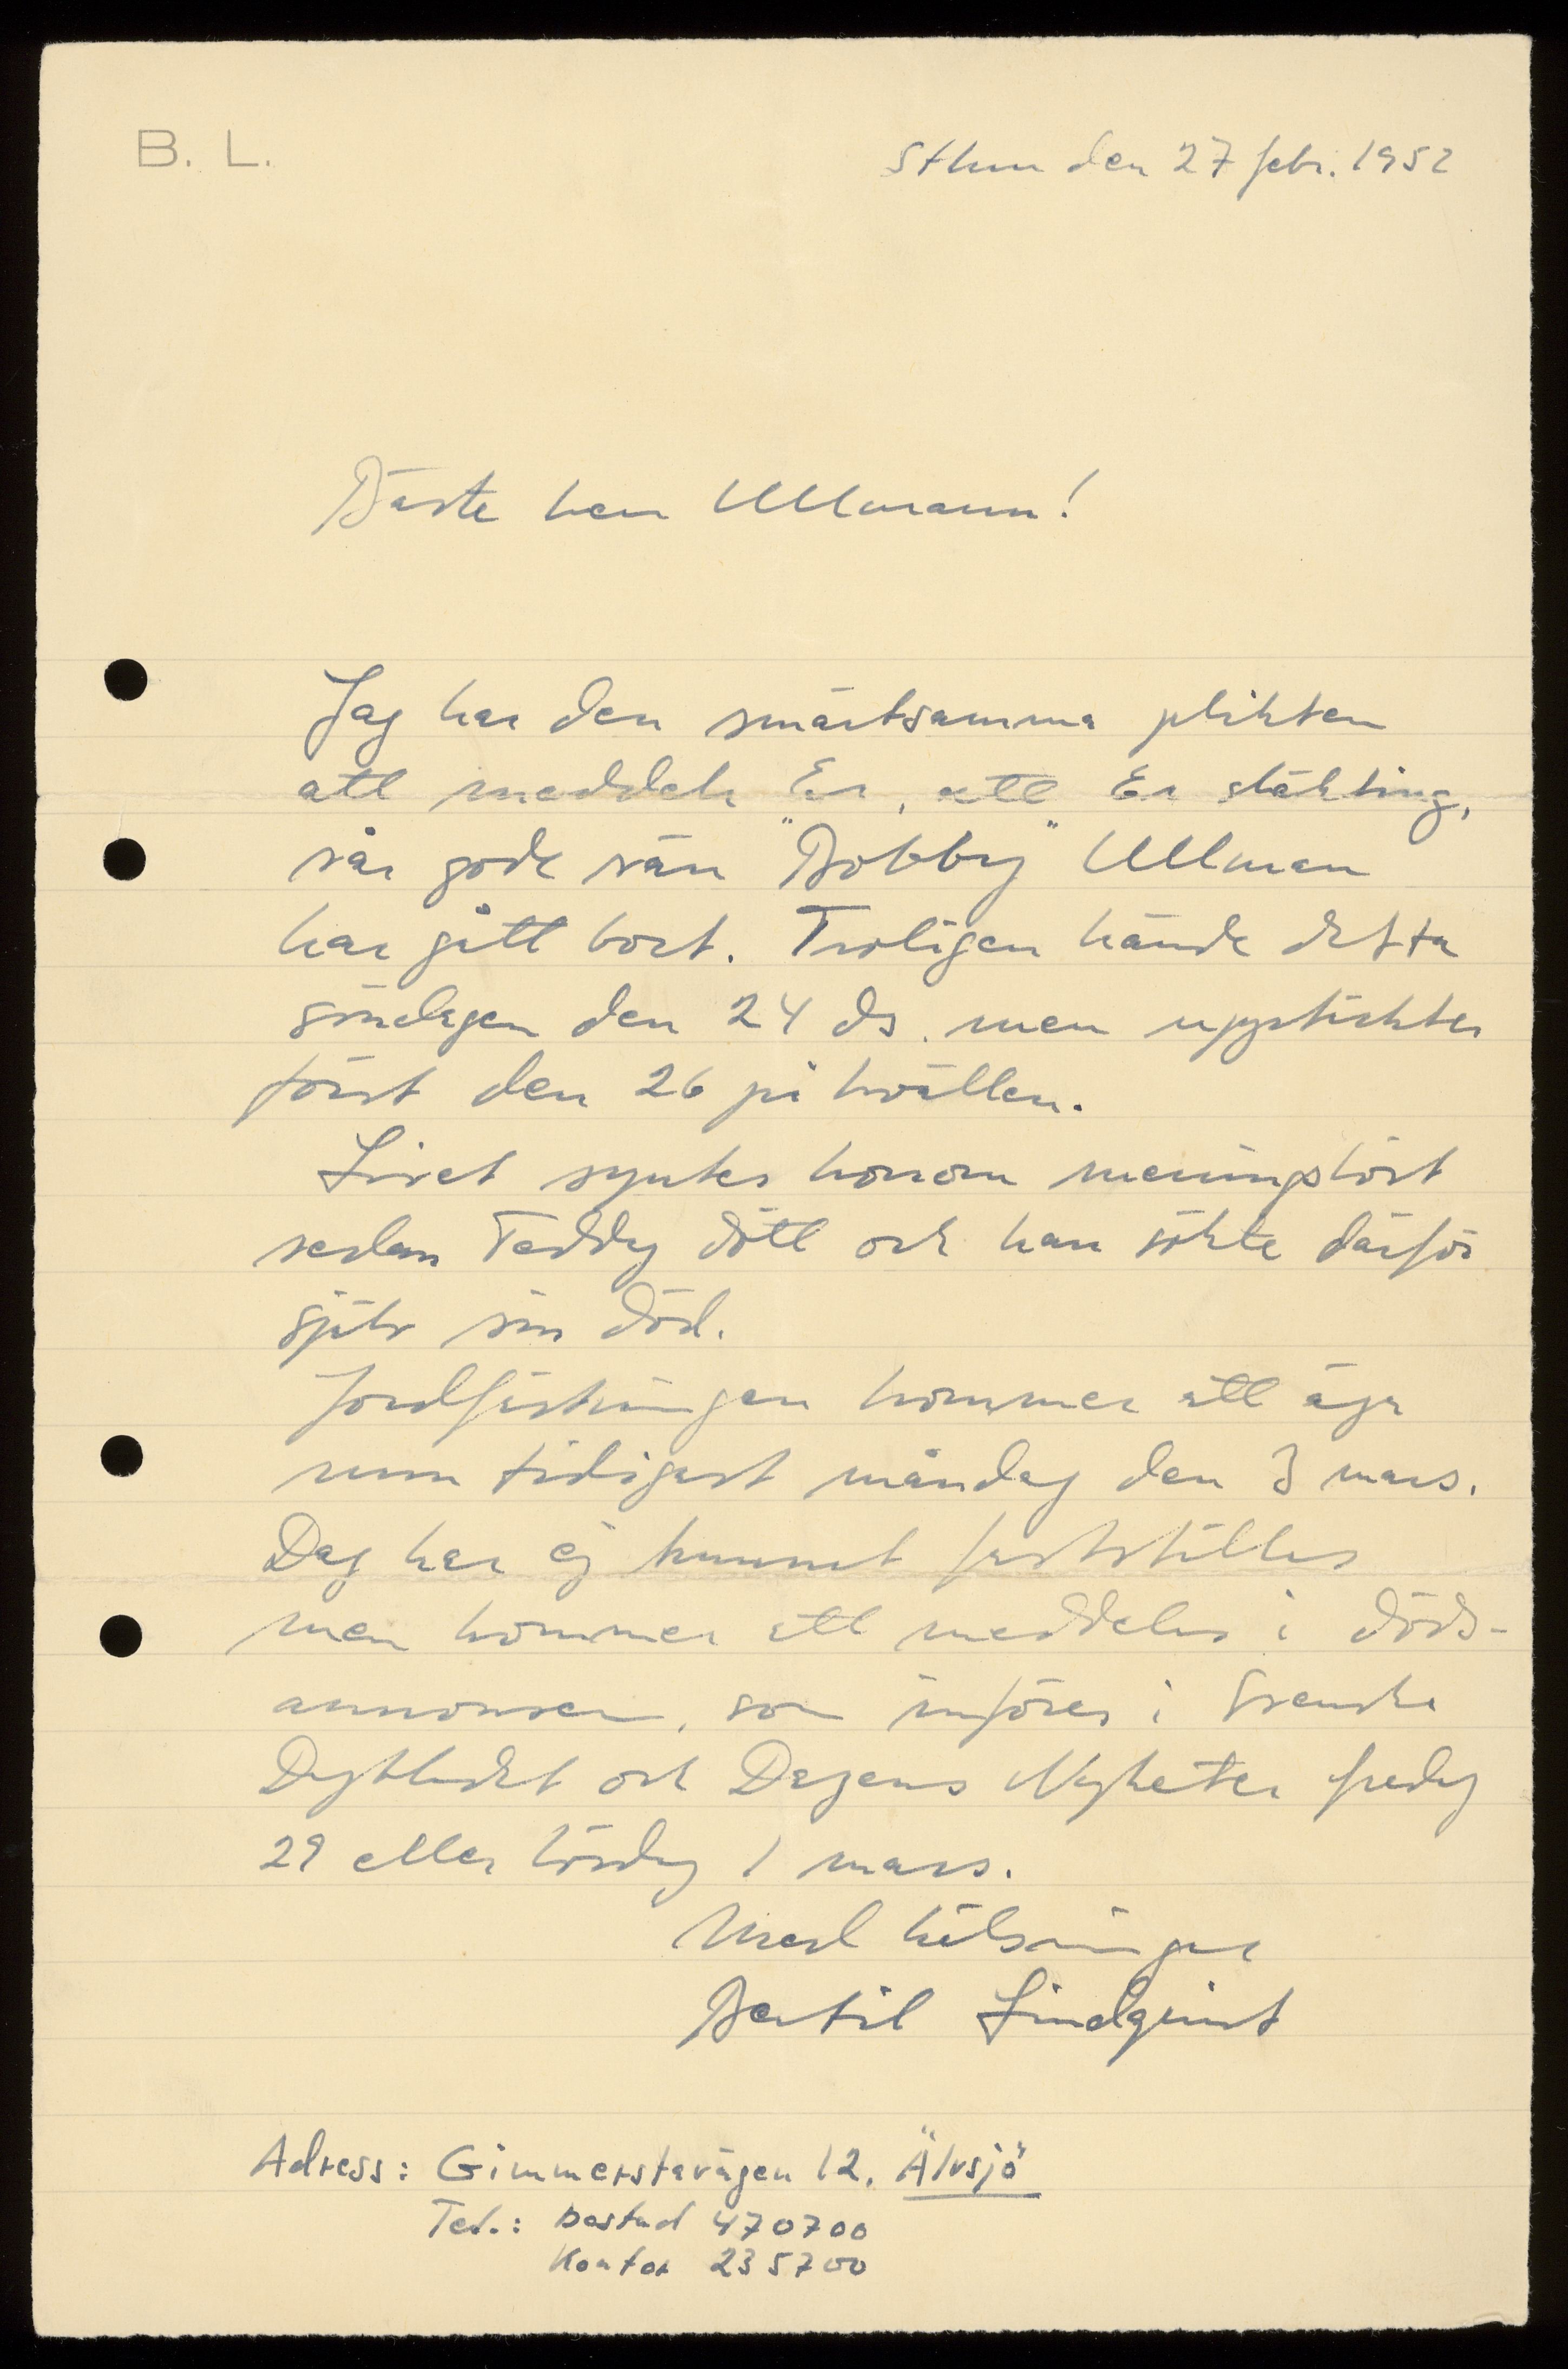 B. L.
Sthm den 27 febr. 1952
Bäste herr Ullmann!
Jag har den smärtsamma plikten
att meddela Er, att Er släkting,
vår gode vän "Bobby" Ullman
har gått bort. Troligen hände detta
söndagen den 24 ds. men upptäcktes
först den 26 på kvällen.
Livet syntes honom meningslöst
sedan Teddy dött och han sökte därför
själv sin död.
Jordfästningen kommer att äga
rum tidigast måndag den 3 mars.
Dag har ej kunnat fastställas
men kommer att meddelas i döds-
annonsen, som införes i Svenska
Dagbladet och Dagens Nyheter fredag
29 eller lördag 1 mars.
Med hälsningar
Bertil Lindqvist
Adress: Gimmerstavägen 12, Älvsjö
Tel.: bostad 470700
Kontor 235700